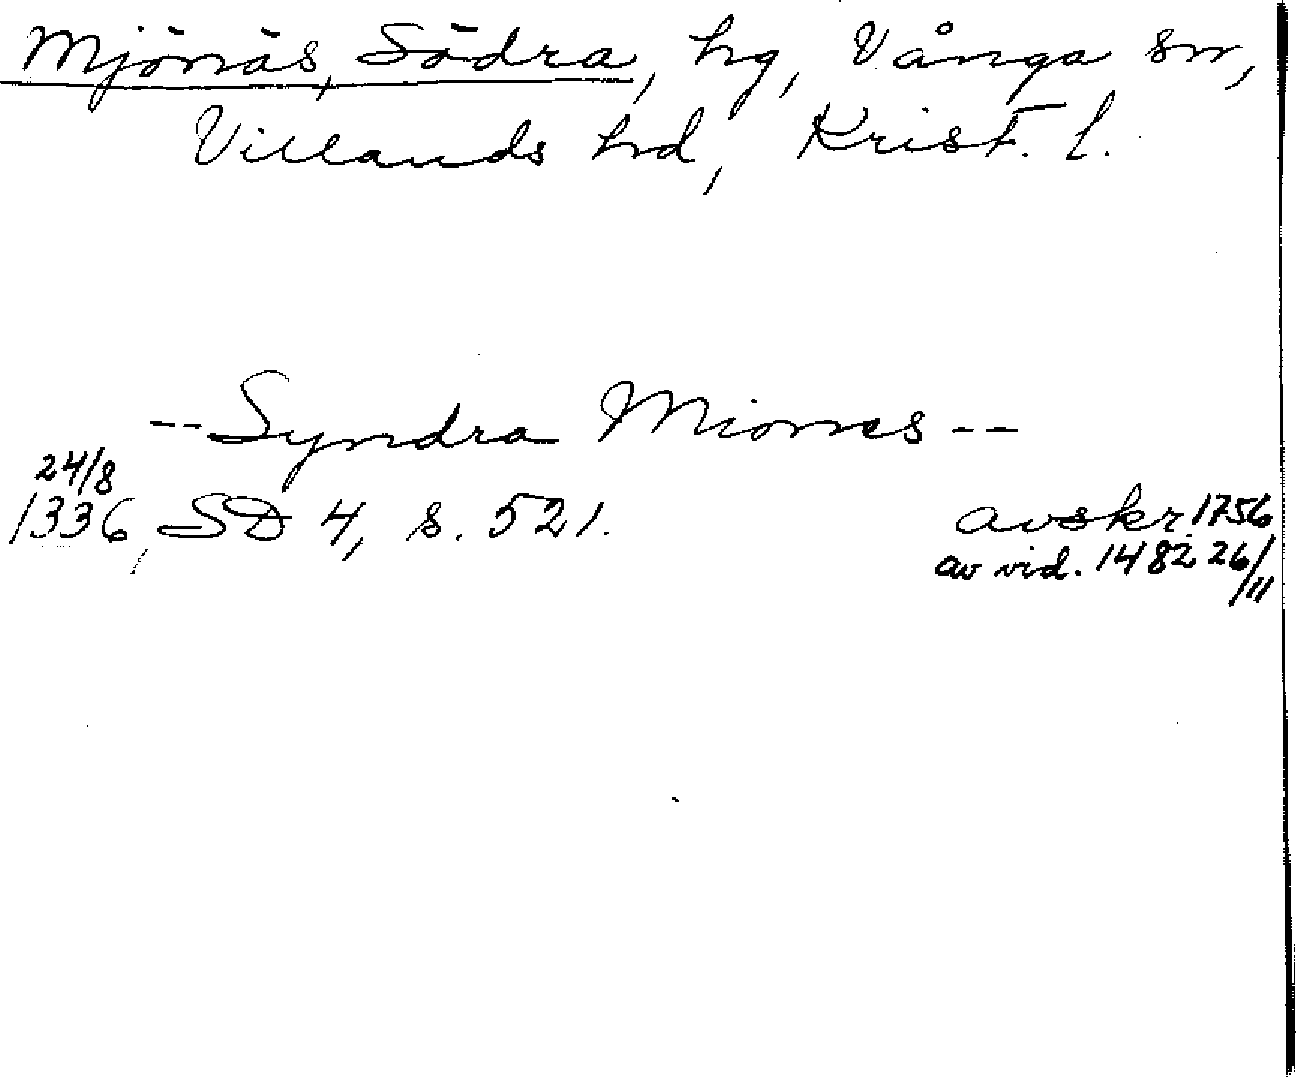 Mjönäs, Södra, hg, Vånga sn,
Villands hd, Krist. l.
-- Syndra Miones --
24/8
1336, SD 4, s. 521.
avskr. 1756
av vid. 1482 26/11